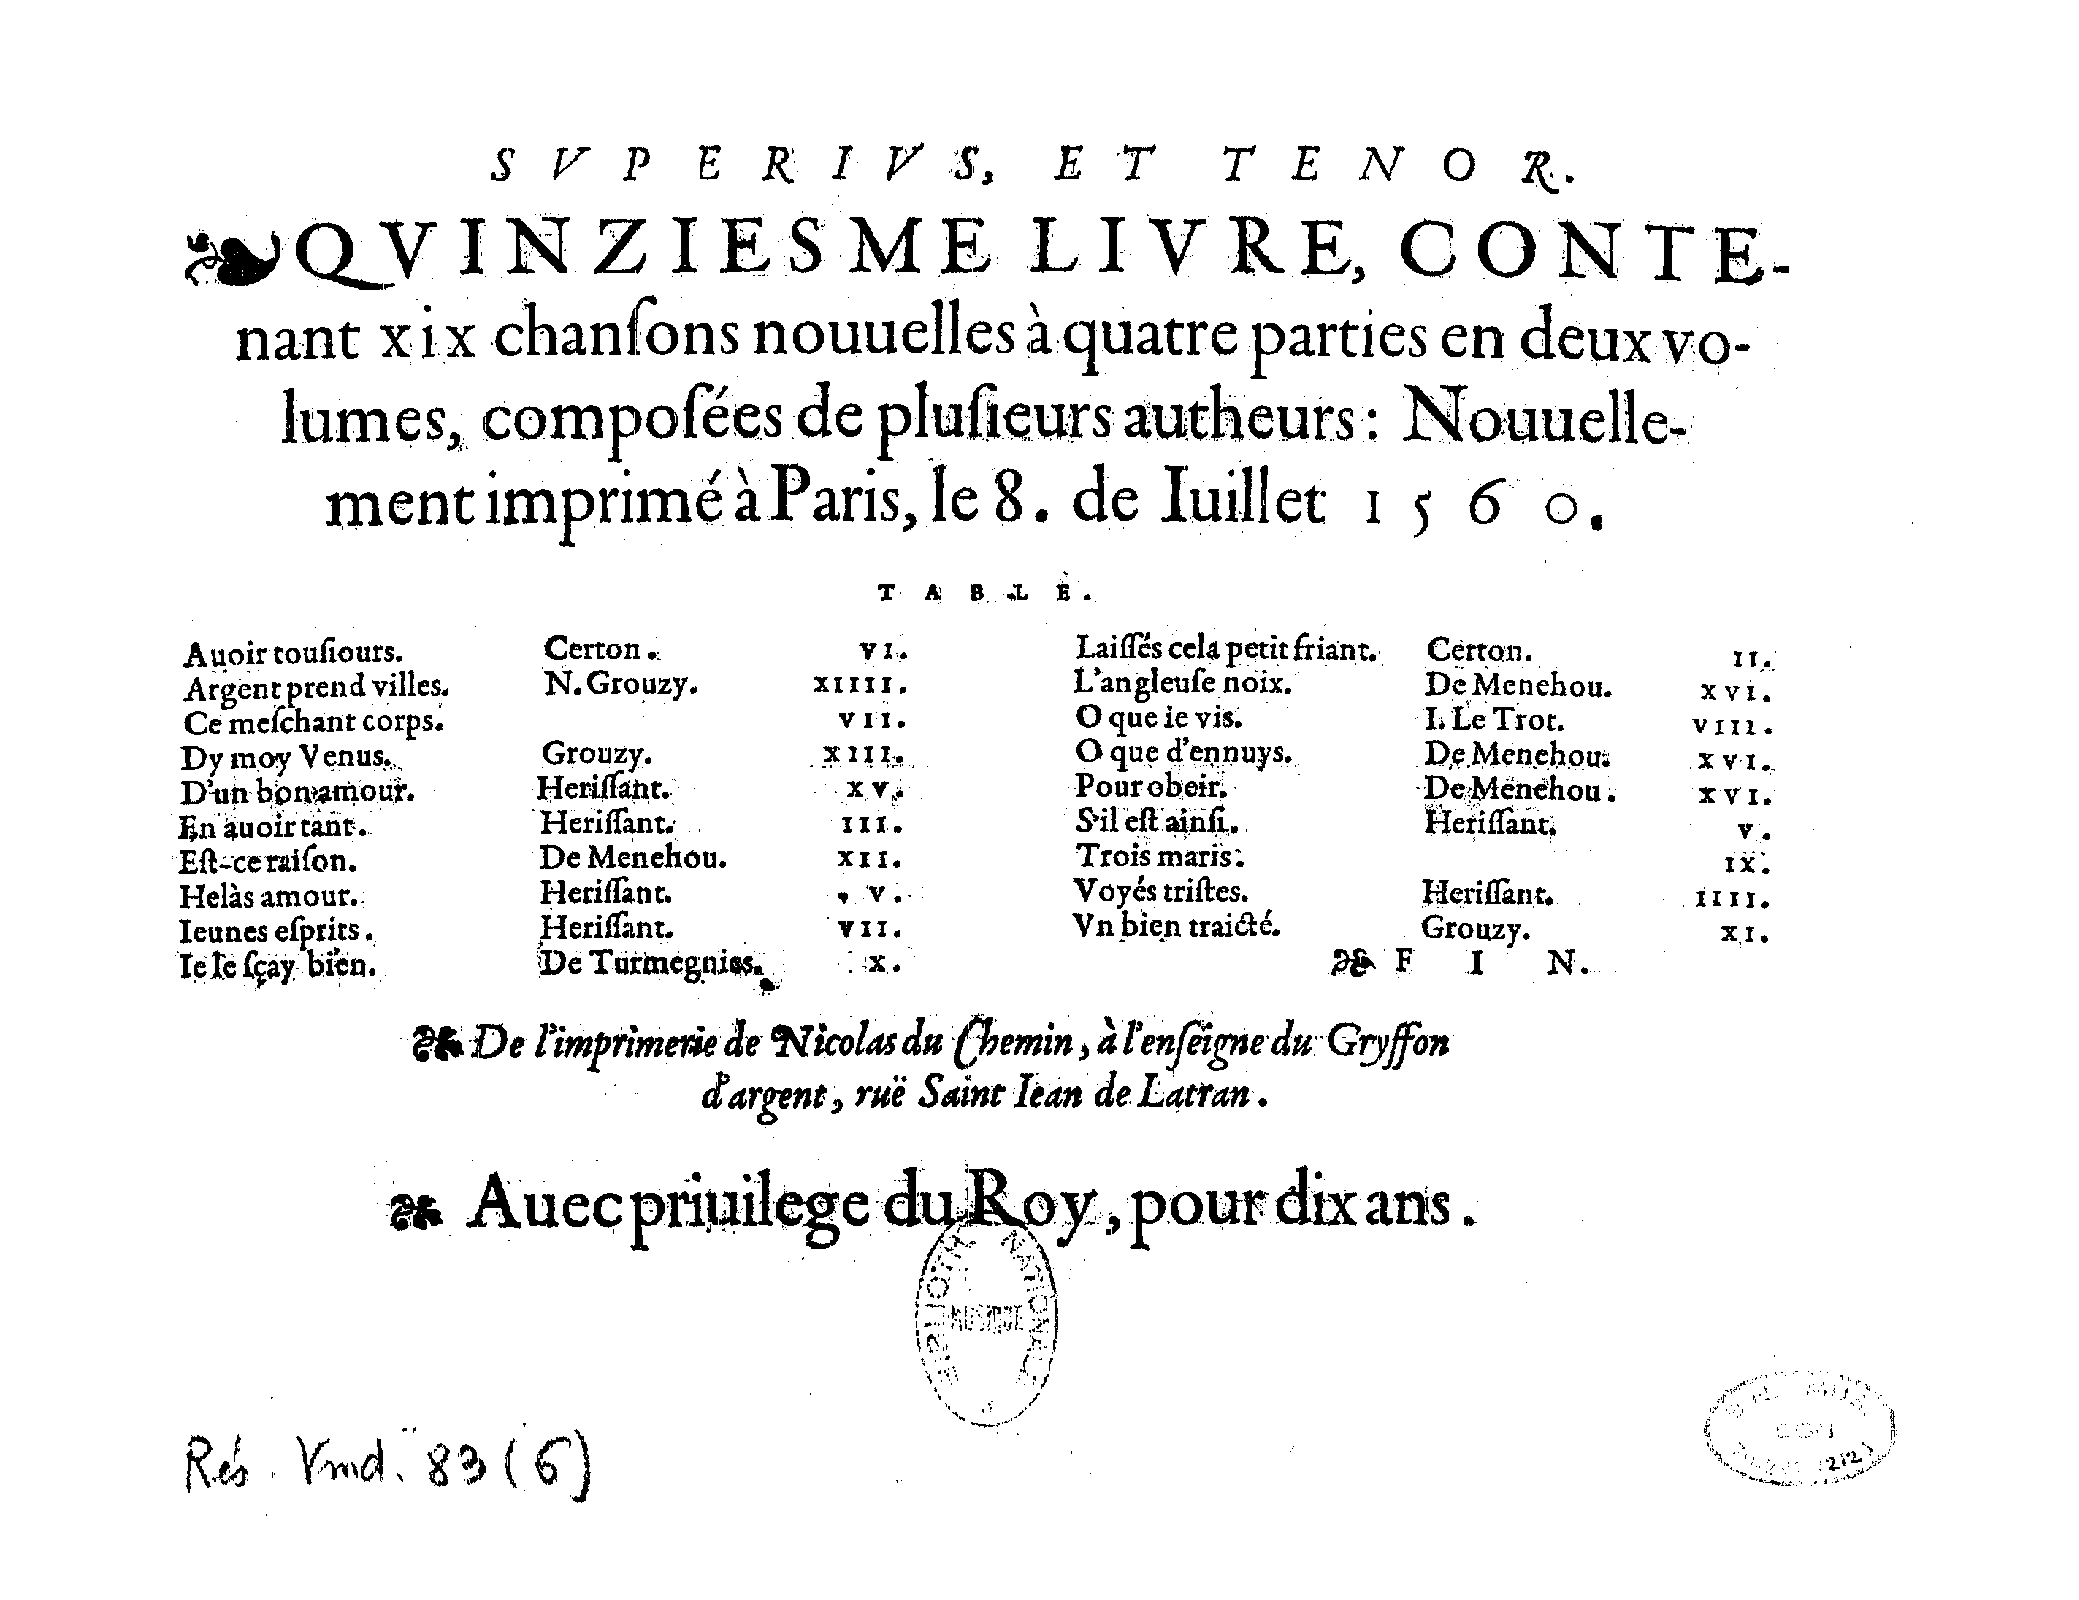 SVPERIVS, ET TENOR.
QVINZIESME LIVRE, CONTE-
nant xix chanſons nouuelles à quatre parties en deux vo-
lumes, compoſées de pluſieurs autheurs: Nouuelle-
ment imprimé à Paris, le 8. de Iuillet 1560.
TABLE.
Auoir touſiours. Certon. VI.
Argent prend villes. N. Grouzy. XIIII.
Ce meſchant corps. VII.
Dy moy Venus. Grouzy. XIII.
D'un bon amour. Heriſſant. XV.
En auoir tant. Heriſſant. III.
Eſt-ce raiſon. De Menehou. XII.
Helàs amour. Heriſſant. V.
Ieunes eſprits. Heriſſant. VII.
Ie le ſçay bien. De Turmegnies. X.
Laiſſés cela petit friant. Certon. II.
L'angleuſe noix. De Menehou. XVI.
O que ie vis. I. Le Trot. VIII.
O que d'ennuys. De Menehou. XVI.
Pour obeir. De Menehou. XVI.
S'il eſt ainſi. Heriſſant. V.
Trois maris. IX.
Voyés triſtes. Heriſſant. IIII.
Vn bien traicté. Grouzy. XI.
FIN.
De l'imprimerie de Nicolas du Chemin, à l'enſeigne du Gryffon
d'argent, ruë Saint Iean de Latran.
Auec priuilege du Roy, pour dix ans.
BIBLIOTH. NATIONALE
MUSIQUE
Rés. Vmd. 83 (6)